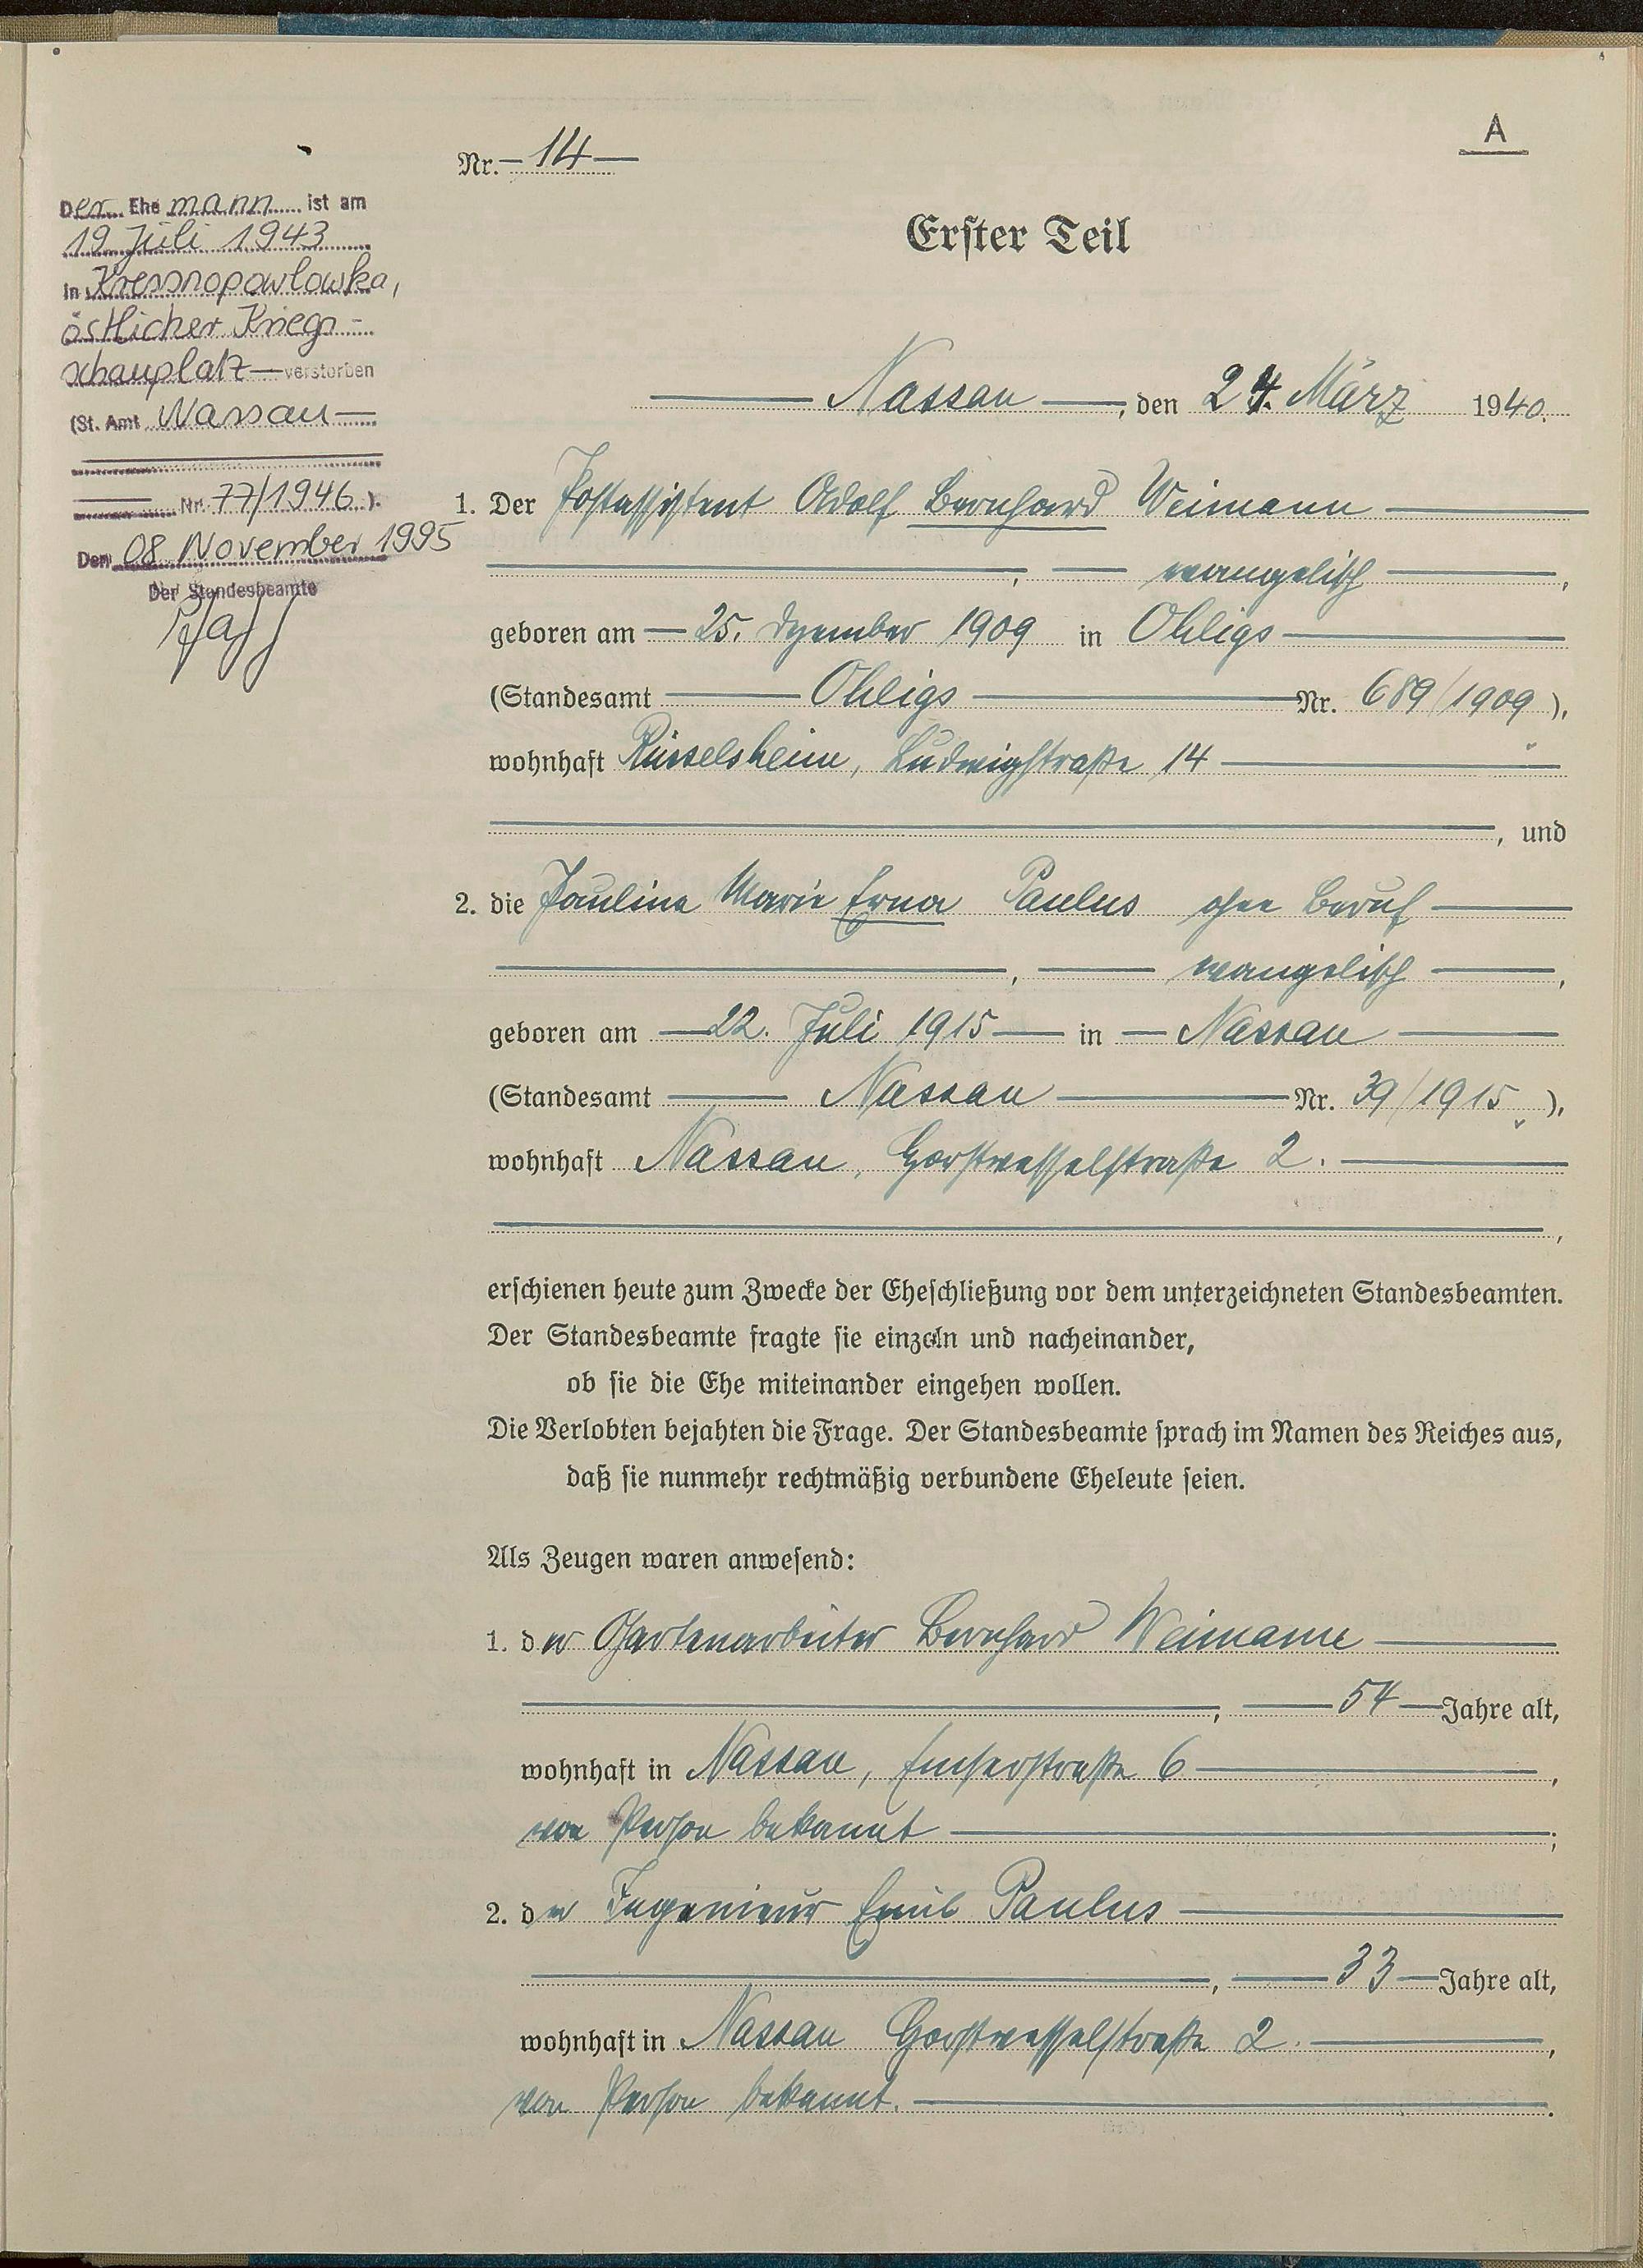 A
Nr. 14
Erster Teil
Der Ehemann ist am
19 Juli 1943
in Kressnopawlowka,
östlicher Kriegs-
schauplatz verstorben
(St. Amt Nassau
Nr. 77/1946 ).
Den 08. November 1995
Der Standesbeamte
Nassau, den 24. März 1940.
1. Der Postassistent Adolf Bernhard Weimann
, evangelisch,
geboren am 25. Dezember 1909 in Ohligs
(Standesamt Ohligs Nr. 689/1909),
wohnhaft Rüsselsheim, Ludwigstraße 14
, und
2. die Pauline Marie Erna Paulus ohne Beruf
, evangelisch,
geboren am 22. Juli 1915 in Nassau
(Standesamt Nassau Nr. 39/1915.),
wohnhaft Nassau, Horstwesselstraße 2.
,
erschienen heute zum Zwecke der Eheschließung vor dem unterzeichneten Standesbeamten.
Der Standesbeamte fragte sie einzeln und nacheinander,
ob sie die Ehe miteinander eingehen wollen.
Die Verlobten bejahten die Frage. Der Standesbeamte sprach im Namen des Reiches aus,
daß sie nunmehr rechtmäßig verbundene Eheleute seien.
Als Zeugen waren anwesend:
1. der Gartenarbeiter Bernhard Weimann
, 54 Jahre alt,
wohnhaft in Nassau, Emserstraße 6,
von Person bekannt;
2. der Ingenieur Emil Paulus
, 33 Jahre alt,
wohnhaft in Nassau Horstwesselstraße 2.,
von Person bekannt.